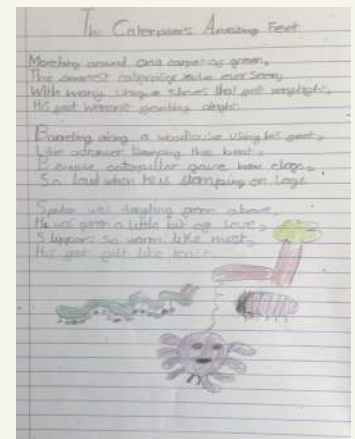 The Caterpillars Amazing Feet
Marching around on a carpet of green,
The smartest caterpillar you've ever seen,
With many unique shoes that fell very tight,
His feet weren't feeling alright.
Bounding along a woodlouse using his feet,
Like a drummer tapping the beat,
Because caterpillar gave him clogs,
So loud when he is stomping on logs
Spider was dangling from above,
He was given a little bit of love,
Slippers so warm like must,
His feet felt like